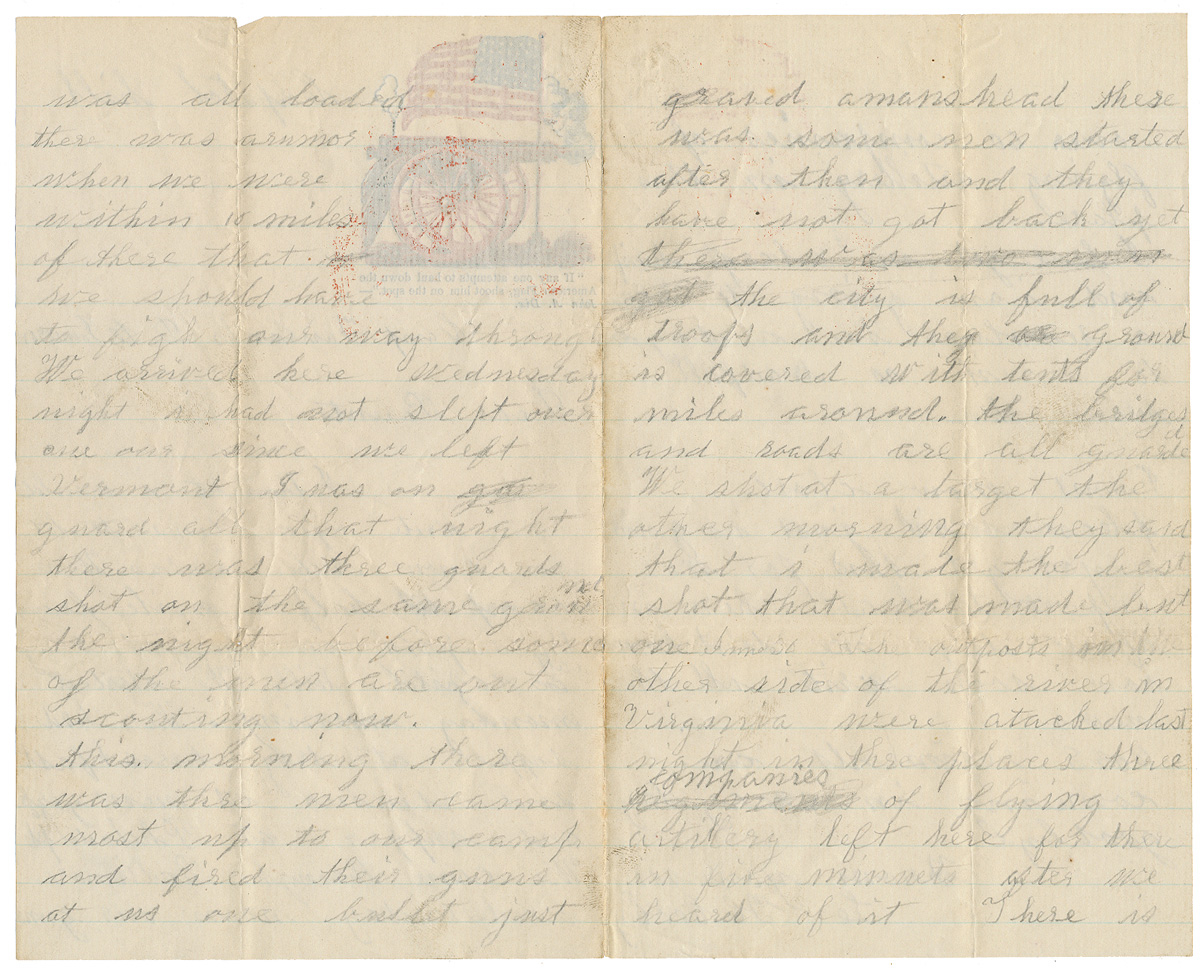 was all loaded
there was arumor
when we were
within 10 miles
of there that
we should have
to figh our way throug
We arrived here Wednesday
night i had not slept over
one our since we left
Vermont I was on gua
guard all that night
there was three guards
shot on the same ground
the night before some
of the men are out
scouting now.
this. morneng there
was thre men came
most up to our camp
and fired their guns
at us one bullet just
graved amans head there
was some men started
after then and they
have not got back yet
there was two men
got the city is full of
troops and the ground
is covered with tents for
miles around. the bridges
and roads are all guarde
We shot at a target the
other morning they said
that i made the best
shot that was made but
one outposts
other side of the river in
Virginia were atacked last
night in thre places three
companies
regiments of flying
artillery left here for there
in five minnets after we
heard of it There is
"If any one attempts to haul down the
American Flag, shoot him on the spot."
John A. Dix.